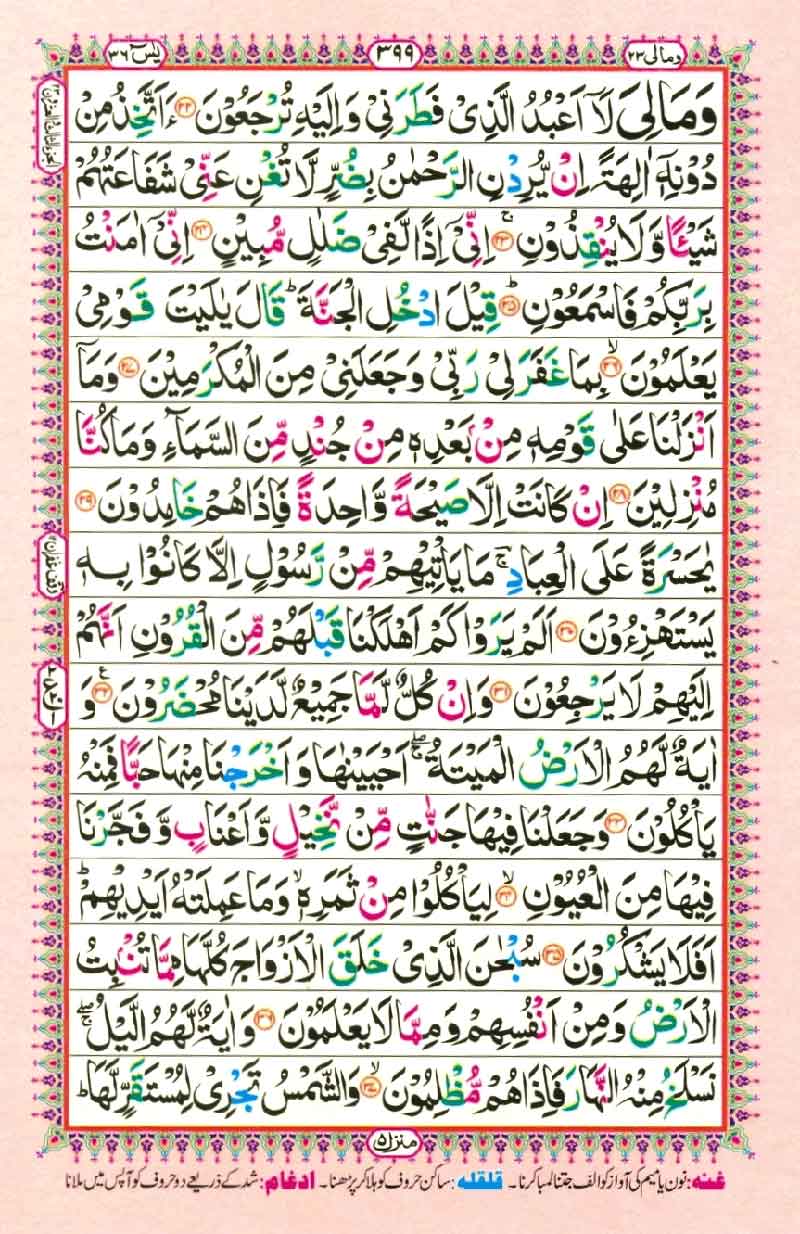 ومالی ۲۳
۳۹۹
یٰسٓ ۳۶
وَمَا لِیَ لَاۤ اَعْبُدُ الَّذِیْ فَطَرَنِیْ وَاِلَیْهِ تُرْجَعُوْنَ ﴿۲۲﴾ ءَاَتَّخِذُ مِنْ
دُوْنِهٖۤ اٰلِهَةً اِنْ یُّرِدْنِ الرَّحْمٰنُ بِضُرٍّ لَّا تُغْنِ عَنِّیْ شَفَاعَتُهُمْ
شَیْـًٔا وَّلَا یُنْقِذُوْنِ ۚ﴿۲۳﴾ اِنِّیْۤ اِذًا لَّفِیْ ضَلٰلٍ مُّبِیْنٍ ﴿۲۴﴾ اِنِّیْۤ اٰمَنْتُ
بِرَبِّكُمْ فَاسْمَعُوْنِ ؕ﴿۲۵﴾ قِیْلَ ادْخُلِ الْجَنَّةَ ؕ قَالَ یٰلَیْتَ قَوْمِیْ
یَعْلَمُوْنَ ۙ﴿۲۶﴾ بِمَا غَفَرَ لِیْ رَبِّیْ وَجَعَلَنِیْ مِنَ الْمُكْرَمِیْنَ ﴿۲۷﴾ وَمَاۤ
اَنْزَلْنَا عَلٰی قَوْمِهٖ مِنْۢ بَعْدِهٖ مِنْ جُنْدٍ مِّنَ السَّمَآءِ وَمَا كُنَّا
مُنْزِلِیْنَ ﴿۲۸﴾ اِنْ كَانَتْ اِلَّا صَیْحَةً وَّاحِدَةً فَاِذَا هُمْ خَامِدُوْنَ ﴿۲۹﴾
یٰحَسْرَةً عَلَی الْعِبَادِ ۚ مَا یَاْتِیْهِمْ مِّنْ رَّسُوْلٍ اِلَّا كَانُوْا بِهٖ
یَسْتَهْزِءُوْنَ ﴿۳۰﴾ اَلَمْ یَرَوْا كَمْ اَهْلَكْنَا قَبْلَهُمْ مِّنَ الْقُرُوْنِ اَنَّهُمْ
اِلَیْهِمْ لَا یَرْجِعُوْنَ ﴿۳۱﴾ وَاِنْ كُلٌّ لَّمَّا جَمِیْعٌ لَّدَیْنَا مُحْضَرُوْنَ ﴿۳۲﴾ وَ
اٰیَةٌ لَّهُمُ الْاَرْضُ الْمَیْتَةُ ۖۚ اَحْیَیْنٰهَا وَاَخْرَجْنَا مِنْهَا حَبًّا فَمِنْهُ
یَاْكُلُوْنَ ﴿۳۳﴾ وَجَعَلْنَا فِیْهَا جَنّٰتٍ مِّنْ نَّخِیْلٍ وَّاَعْنَابٍ وَّفَجَّرْنَا
فِیْهَا مِنَ الْعُیُوْنِ ۙ﴿۳۴﴾ لِیَاْكُلُوْا مِنْ ثَمَرِهٖ ۙ وَمَا عَمِلَتْهُ اَیْدِیْهِمْ ؕ
اَفَلَا یَشْكُرُوْنَ ﴿۳۵﴾ سُبْحٰنَ الَّذِیْ خَلَقَ الْاَزْوَاجَ كُلَّهَا مِمَّا تُنْۢبِتُ
الْاَرْضُ وَمِنْ اَنْفُسِهِمْ وَمِمَّا لَا یَعْلَمُوْنَ ﴿۳۶﴾ وَاٰیَةٌ لَّهُمُ الَّیْلُ ۖۚ
نَسْلَخُ مِنْهُ النَّهَارَ فَاِذَا هُمْ مُّظْلِمُوْنَ ۙ﴿۳۷﴾ وَالشَّمْسُ تَجْرِیْ لِمُسْتَقَرٍّ لَّهَا ؕ
منزل ۵
غنه: نون یا میم کی آواز کو الف جتنا لمبا کرنا۔ قلقله: ساکن حروف کو ہلا کر پڑھنا۔ ادغام: شد کے ذریعے دو حروف کو آپس میں ملانا